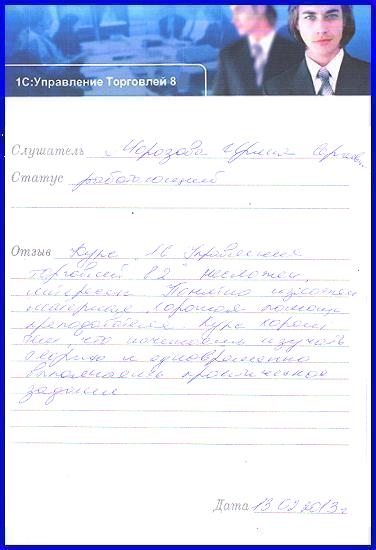 1С:Управление Торговлей 8
Слушатель Морозова Ирина Сергеевн.
Статус работающий
Отзыв Курс "1С Управление
торговлей 8.2" несложен,
интересен. Понятно изложен
материал, хорошая помощь
преподавателя. Курс хорош
тем, что начинаем изучать
теорию и одновременно
выполняешь практическое
задание
Дата 13.02.2013г